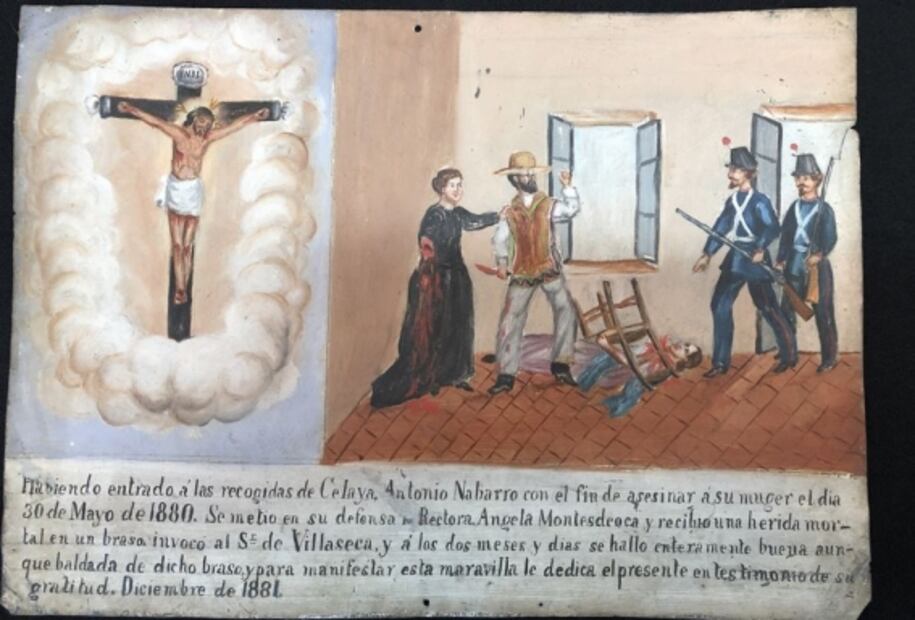 INRI
Habiendo entrado á las recogidas de Celaya, Antonio Nabarro con el fin de asesinar á su muger el dia
30 de Mayo de 1880. Se metio en su defensa Rectora Angela Montesdeoca y recibio una herida mor-
tal en un braso invocó al Sr. de Villaseca, y á los dos meses y dias se hallo enteramente buena aun-
que baldada de dicho braso, y para manifestar esta maravilla le dedica el presente en testimonio de su
gratitud. Diciembre de 1881.